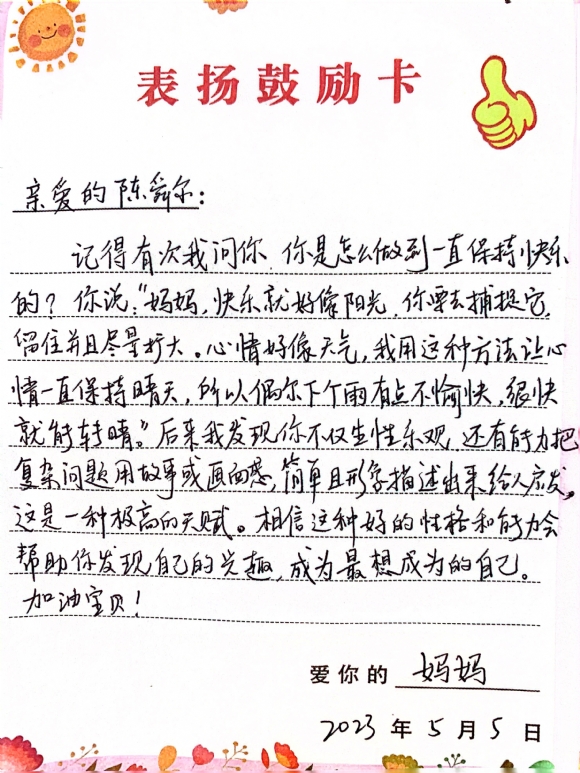 表扬鼓励卡
亲爱的陈舜尔:
记得有次我问你,你是怎么做到一直保持快乐
的?你说:"妈妈,快乐就好像阳光,你要去捕捉它,
留住并且尽量扩大。心情好像天气,我用这种方法让心
情一直保持晴天,所以偶尔下个雨有点不愉快,很快
就能转晴。"后来我发现你不仅生性乐观,还有能力把
复杂问题用故事或画面感,简单且形象描述出来给人启发,
这是一种极高的天赋。相信这种好的性格和能力会
帮助你发现自己的兴趣,成为最想成为的自己。
加油宝贝!
爱你的 妈妈
2023年5月5日